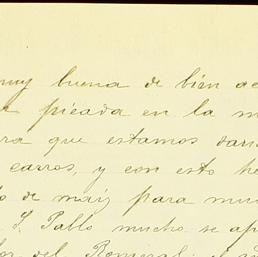 muy buena de bien ac
picada en la m
ra que estamos dan
carros, y con esto he
o de maiz para mu
S. Pablo mucho se ap
lor del Romeral; el